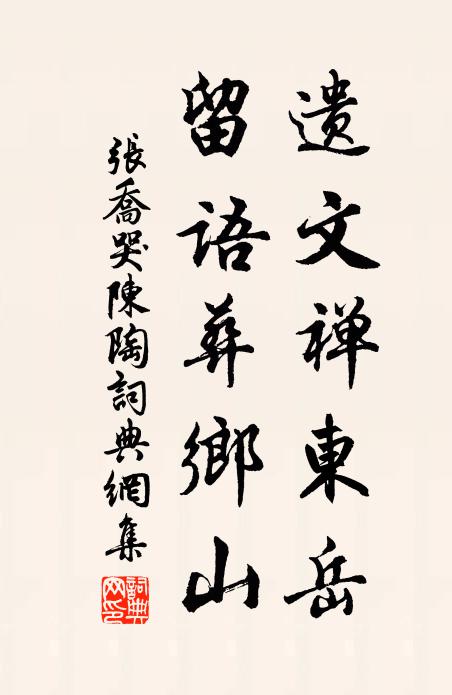 遗文禅東岳
留语葬鄉山
張喬哭陳陶詞典網集
詞典网印